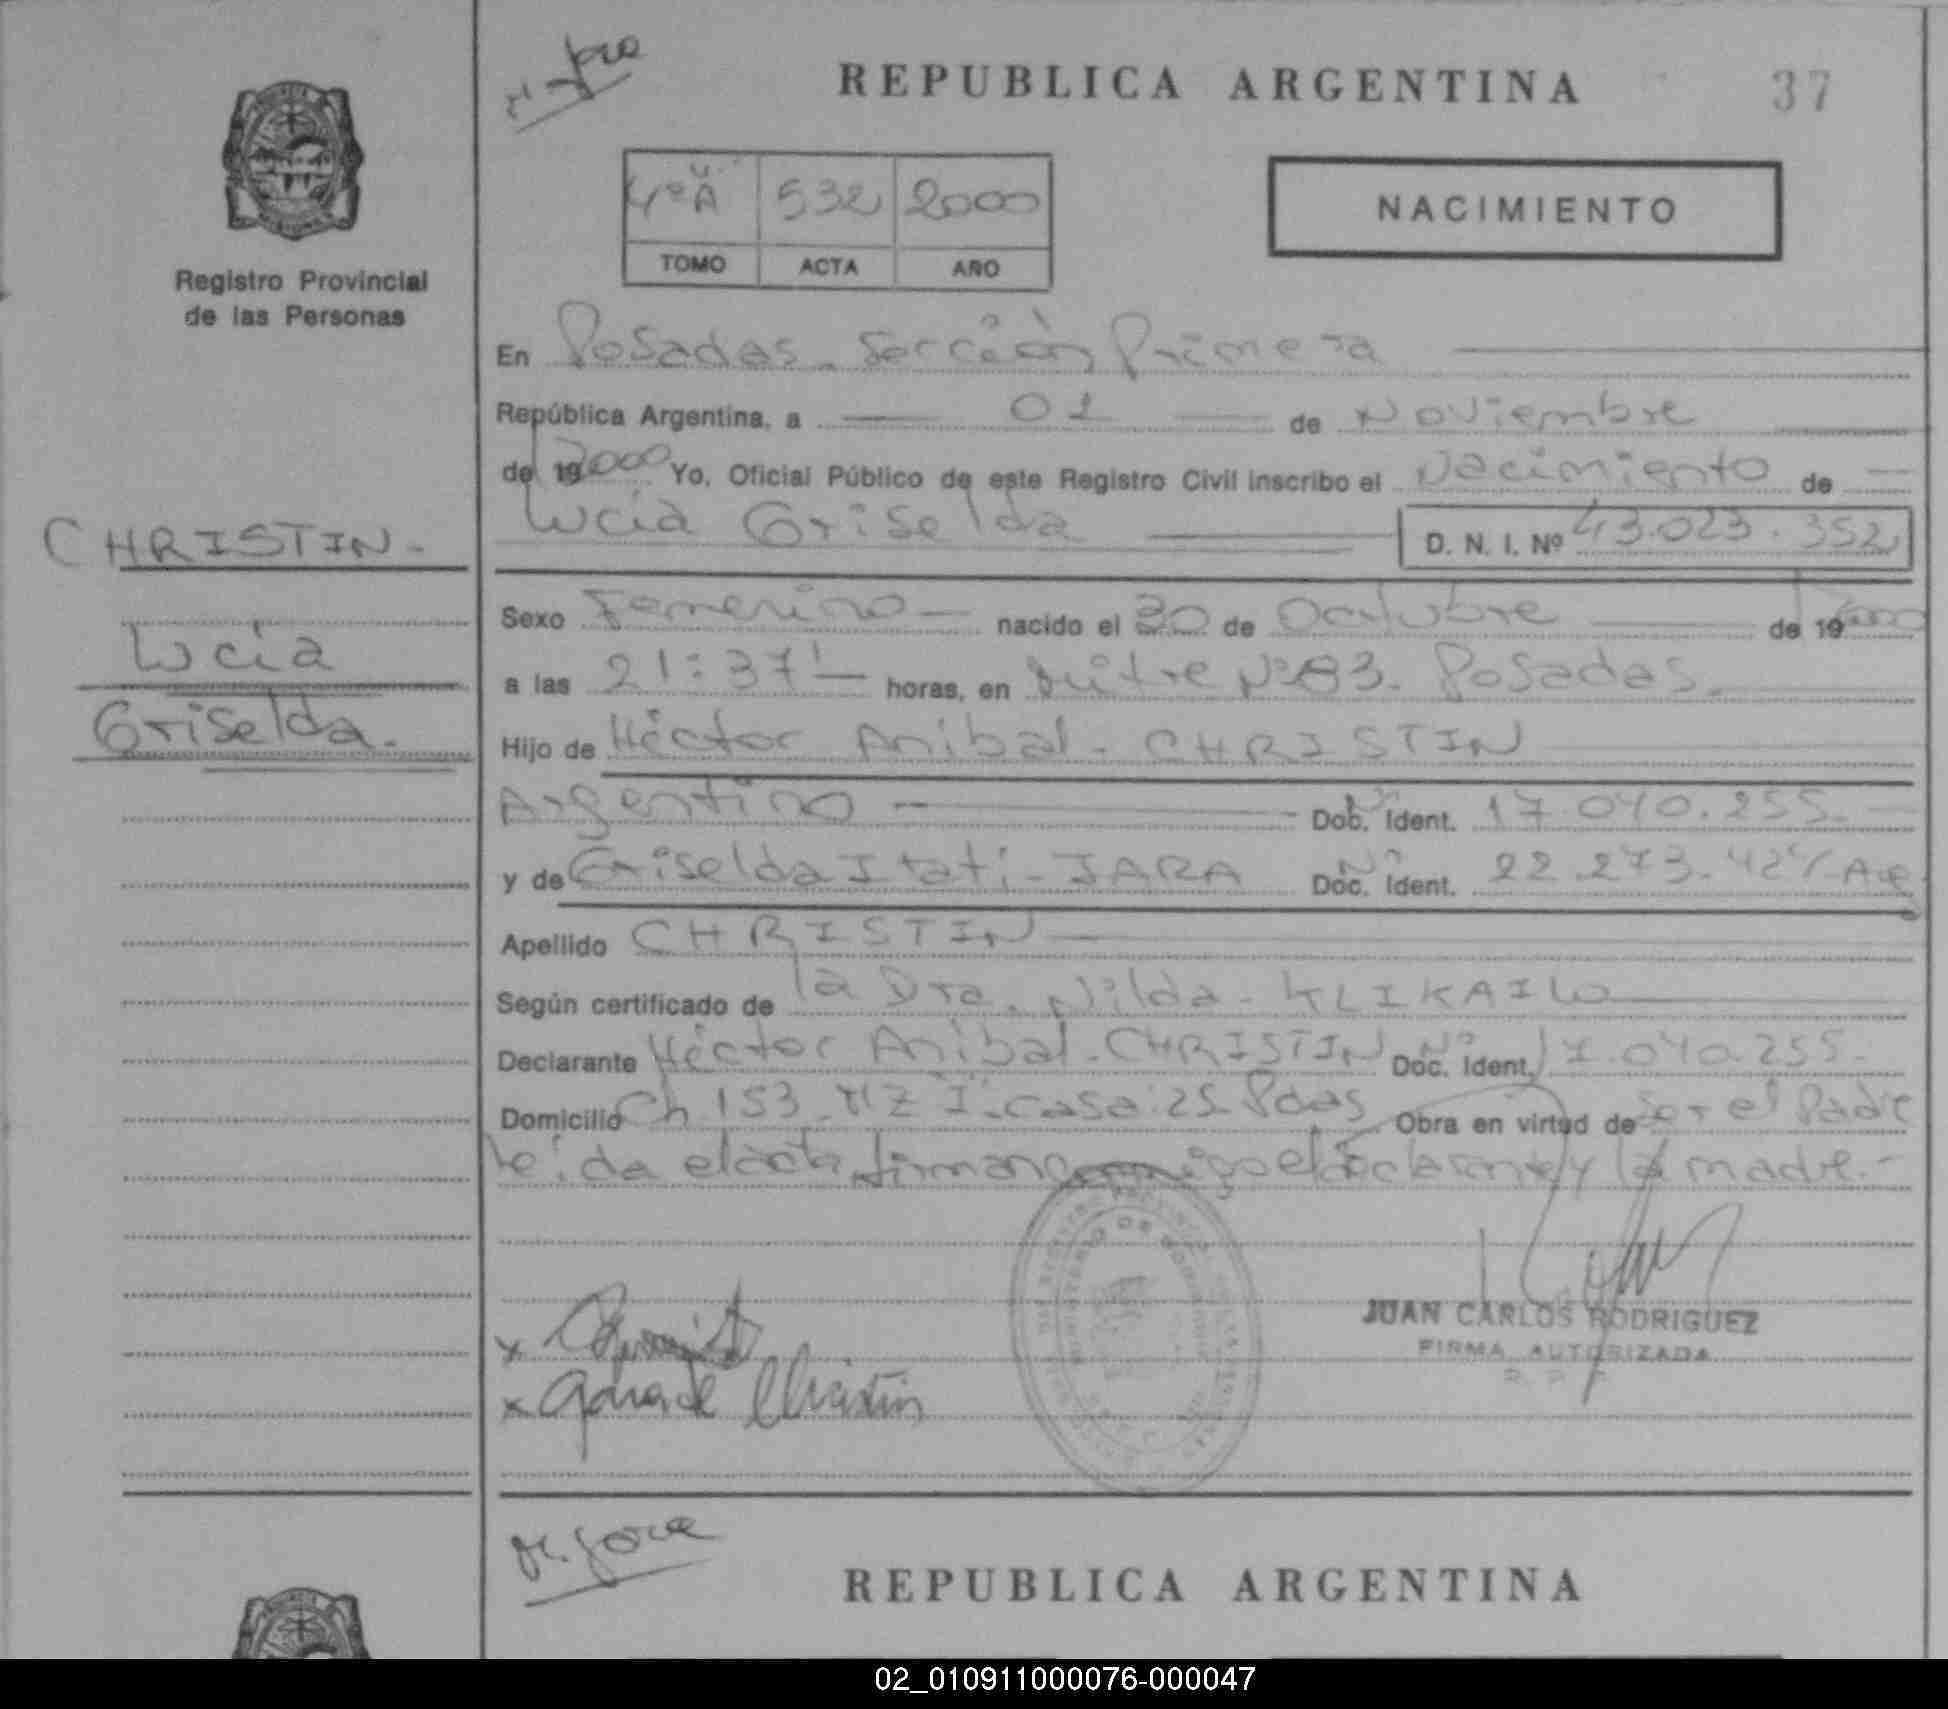 REPUBLICA ARGENTINA 37
4º"A" 532 2000
TOMO ACTA AÑO
NACIMIENTO
Registro Provincial
de las Personas
CHRISTIN.
Lucia
Griselda.
En Posadas. Sección Primera
República Argentina, a 01 de Noviembre
de 19 2000 Yo, Oficial Público de este Registro Civil inscribo el Nacimiento de
Lucia Griselda D. N. I. Nº 43.023.352
Sexo Femenino nacido el de Octubre de 19 2000
a las 21:37' horas, en Mitre Nº 83. Posadas.
Hijo de Héctor Anibal. CHRISTIN
Argentino Nº Doc. Ident. 17.040.255.
y de Griselda Itati. JARA Nº Doc. Ident. 22.273.427
Apellido CHRISTIN
Según certificado de la Dra. Nilda. KLIKAILO
Declarante Héctor Anibal. CHRISTIN Nº Doc. Ident. 17.040.255.
Domicilio Ch 153. MZ "I". casa: 25. Pdas Obra en virtud de ser el Padre
leída el acta firman conmigo el declarante y la madre.-
x
x Christin
JUAN CARLOS RODRIGUEZ
FIRMA AUTORIZADA
R. P. P.
REPUBLICA ARGENTINA
02_010911000076-000047